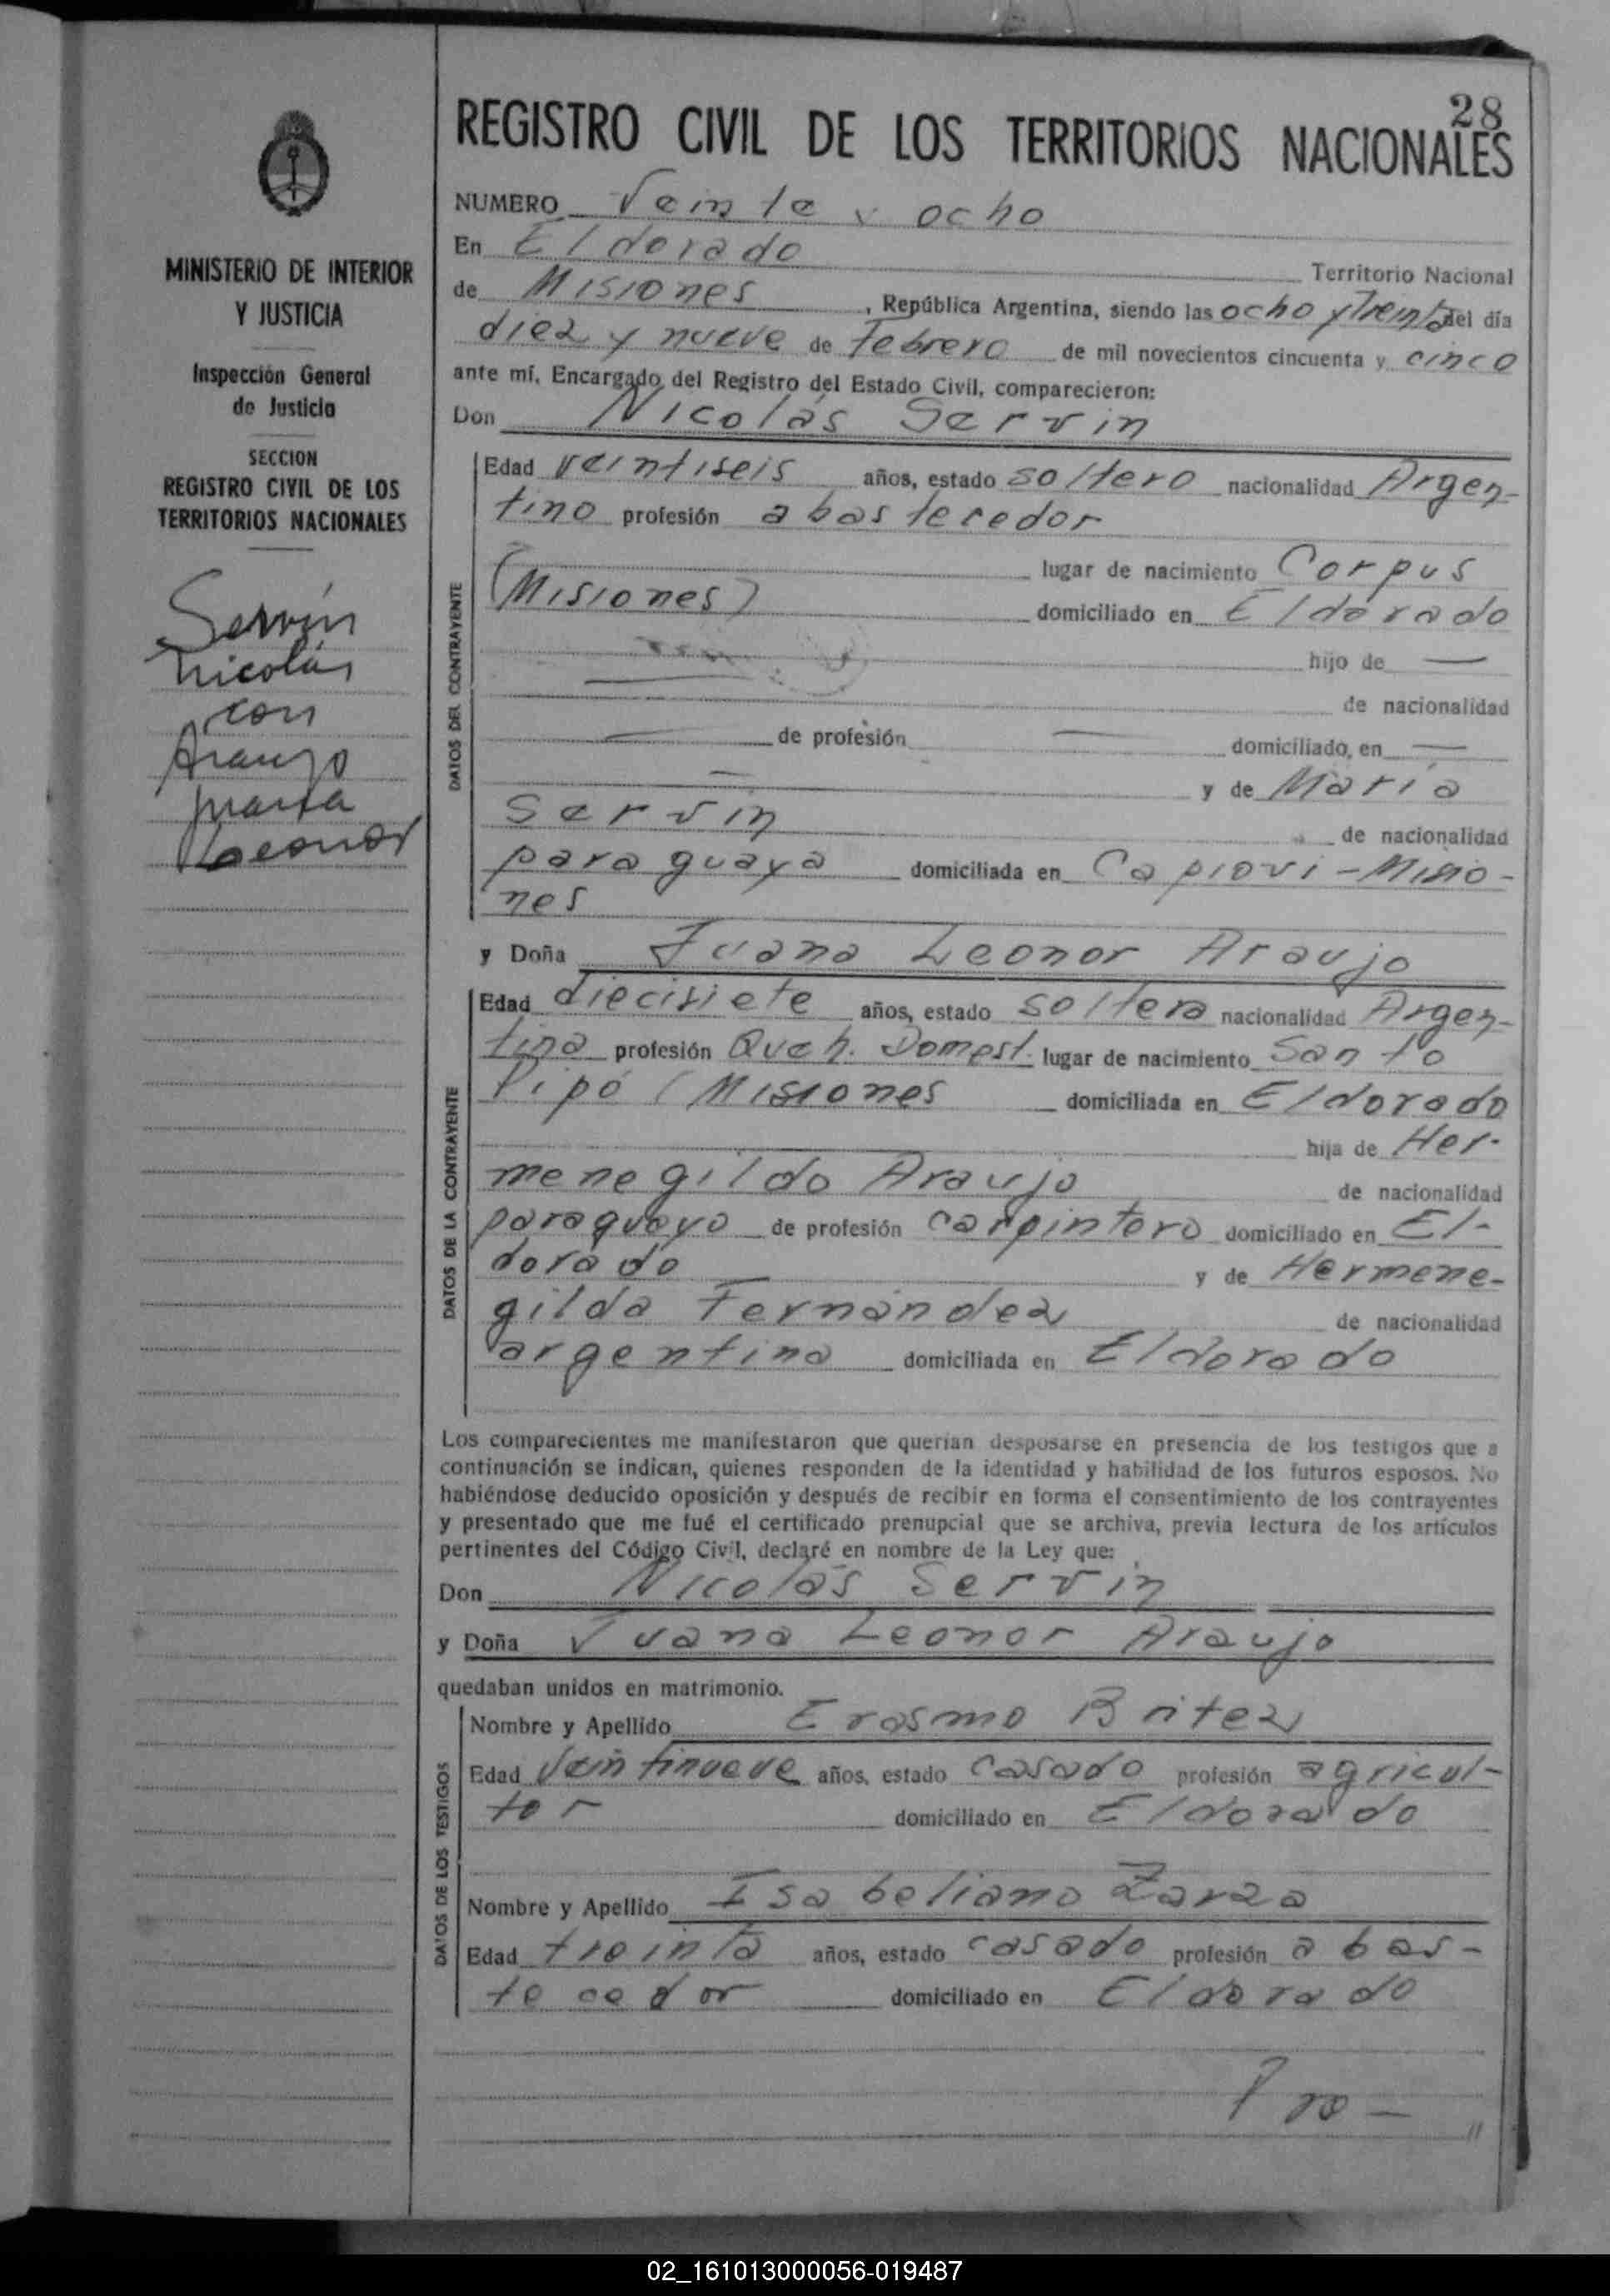 28
REGISTRO CIVIL DE LOS TERRITORIOS NACIONALES
MINISTERIO DE INTERIOR
Y JUSTICIA
Inspección General
de Justicia
SECCION
REGISTRO CIVIL DE LOS
TERRITORIOS NACIONALES
Servín
Nicolás
con
Araujo
Juana
Leonor
NUMERO Veinte y ocho
En Eldorado Territorio Nacional
de Misiones, República Argentina, siendo las ocho y treinta del día
diez y nueve de Febrero de mil novecientos cincuenta y cinco
ante mí, Encargado del Registro del Estado Civil, comparecieron:
Don Nicolás Servin
DATOS DEL CONTRAYENTE
Edad veintiseis años, estado soltero nacionalidad Argen-
tino profesión abastecedor
lugar de nacimiento Corpus
(Misiones) domiciliado en Eldorado
hijo de —
de nacionalidad
— de profesión — domiciliado, en —
— y de María
Servin de nacionalidad
paraguaya domiciliada en Capiovi - Misio-
nes
y Doña Juana Leonor Araujo
DATOS DE LA CONTRAYENTE
Edad diecisiete años, estado soltera nacionalidad Argen-
tina profesión Queh. Domest. lugar de nacimiento Santo
Pipó (Misiones domiciliada en Eldorado
hija de Her-
menegildo Araujo de nacionalidad
paraguayo de profesión carpintero domiciliado en El-
dorado y de Hermene-
gilda Fernández de nacionalidad
argentina domiciliada en Eldorado
Los comparecientes me manifestaron que querían desposarse en presencia de los testigos que a
continuación se indican, quienes responden de la identidad y habilidad de los futuros esposos. No
habiéndose deducido oposición y después de recibir en forma el consentimiento de los contrayentes
y presentado que me fué el certificado prenupcial que se archiva, previa lectura de los artículos
pertinentes del Código Civil, declaré en nombre de la Ley que:
Don Nicolás Servin
y Doña Juana Leonor Araujo
quedaban unidos en matrimonio.
DATOS DE LOS TESTIGOS
Nombre y Apellido Erasmo Britez
Edad Veintinueve años, estado casado profesión agricul-
tor domiciliado en Eldorado
Nombre y Apellido Isabeliano Zarza
Edad treinta años, estado casado profesión abas-
tecedor domiciliado en Eldorado
Pro -
02_161013000056-019487